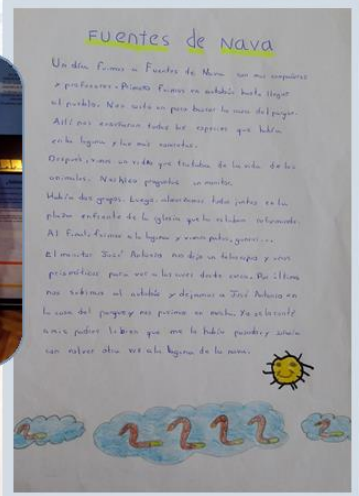 Fuentes de Nava
Un día fuimos a Fuentes de Nava con mis compañeros
y profesores. Primero fuimos en autobús hasta llegar
al pueblo. Nos costó un poco buscar la casa del parque.
Allí nos enseñaron todas las especies que había
en la laguna y las más concretas.
Después, vimos un vídeo que trataba de la vida de los
animales. Nos hizo preguntas un monitor.
Había dos grupos. Luego, almorzamos todos juntos en la
plaza enfrente de la iglesia que la estaban reformando.
Al final, fuimos a la laguna y vimos patos, gansos...
El monitor José Antonio nos dejó un telescopio y unos
prismáticos para ver a las aves desde cerca. Por último
nos subimos al autobús y dejamos a José Antonio en
la casa del parque y nos pusimos en marcha. Ya se lo conté
a mis padres lo bien que me lo había pasado y
con volver otra vez a la laguna de la nava.